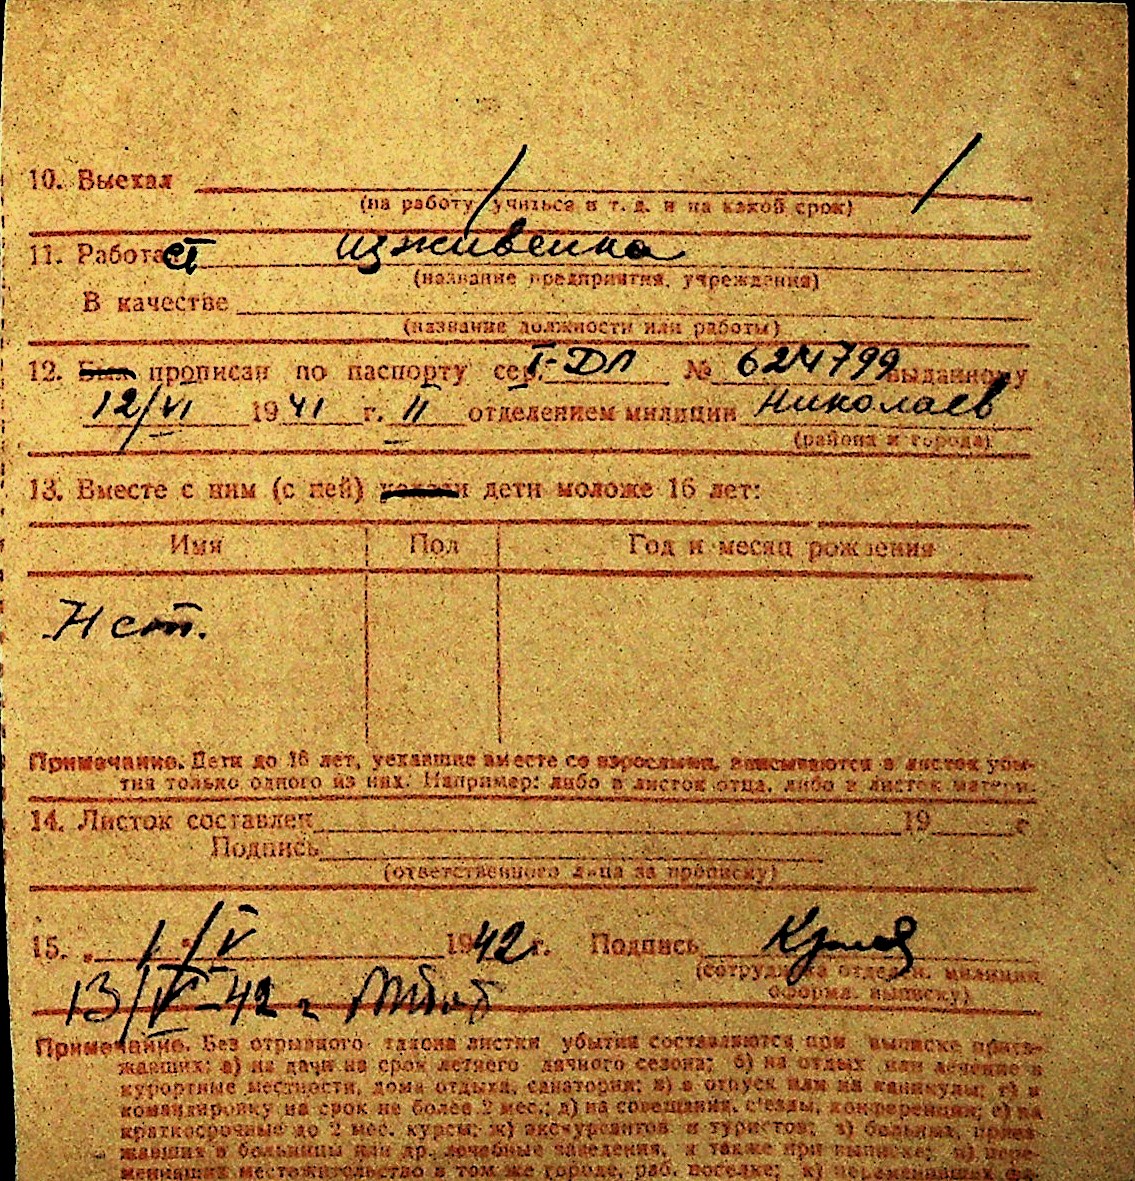 10. Выехал
(на работу, учиться и т. д. и на какой срок)
11. Работает иждивенка
(название предприятия, учреждения)
В качестве
(название должности или работы)
12. Был прописан по паспорту сер. I-ДЛ № 624799 выданному
12/VI 1941 г. II отделением милиции Николаев
(района и города)
13. Вместе с ним (с ней) дети моложе 16 лет:
Имя Пол Год и месяц рождения
Нет.
Примечание. Дети до 16 лет, уехавшие вместе со взрослыми, вписываются в листок убы-
тия только одного из них. Например: либо в листок отца, либо в листок матери.
14. Листок составлен 19 г
Подпись
(ответственного лица за прописку)
15. „1“/V 1942 г. Подпись
(сотрудника отделен. милиции
оформ. выписку)
13/V-42 г.
Примечание. Без отрывного талона листки убытия составляются при выписке приез-
жавших: а) на дачи на срок летнего дачного сезона; б) на отдых или лечение в
курортные местности, дома отдыха, санатории; в) в отпуск или на каникулы; г) в
командировку на срок не более 2 мес.; д) на совещания, с'езды, конференции; е) на
краткосрочные до 2 мес. курсы; ж) экскурсантов и туристов; з) больных, приез-
жавших в больницы или др. лечебные заведения, а также при выписке; и) пере-
менивших местожительство в том же городе, раб. поселке; к) переменивших